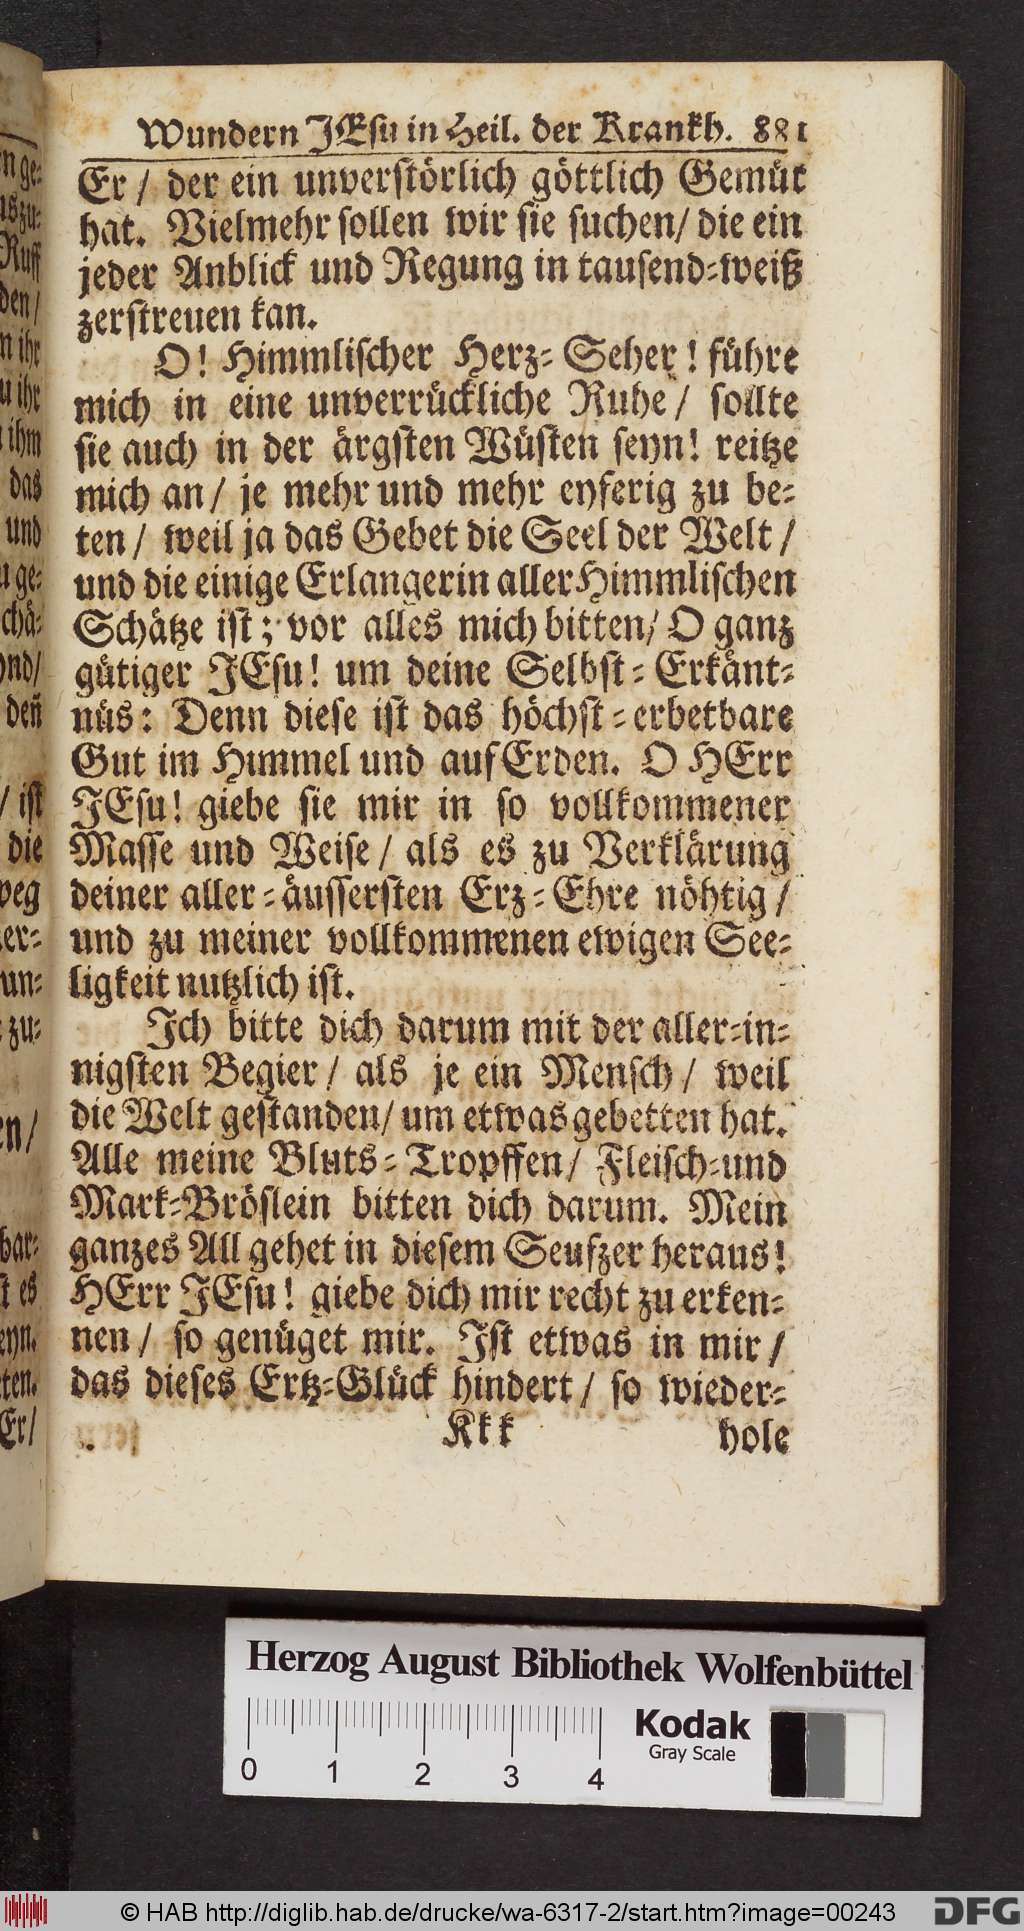 Wundern JEsu in Heil. der Krankh. 881
Er / der ein unverstörlich göttlich Gemüt
hat. Vielmehr sollen wir sie suchen / die ein
jeder Anblick und Regung in tausend-weiß
zerstreuen kan.
O! Himmlischer Herz-Seher! führe
mich in eine unverrückliche Ruhe / sollte
sie auch in der ärgsten Wüsten seyn! reitze
mich an / je mehr und mehr eyferig zu be-
ten / weil ja das Gebet die Seel der Welt /
und die einige Erlangerin aller Himmlischen
Schätze ist; vor alles mich bitten / O ganz
gütiger JEsu! um deine Selbst-Erkänt-
nüs: Denn diese ist das höchst-erbetbare
Gut im Himmel und auf Erden. O HErr
JEsu! giebe sie mir in so vollkommener
Masse und Weise / als es zu Verklärung
deiner aller-äussersten Erz-Ehre nöhtig /
und zu meiner vollkommenen ewigen See-
ligkeit nutzlich ist.
Ich bitte dich darum mit der aller-in-
nigsten Begier / als je ein Mensch / weil
die Welt gestanden / um etwas gebetten hat.
Alle meine Bluts-Tropffen / Fleisch-und
Mark-Bröslein bitten dich darum. Mein
ganzes All gehet in diesem Seufzer heraus!
HErr JEsu! giebe dich mir recht zu erken-
nen / so genüget mir. Ist etwas in mir /
das dieses Ertz-Glück hindert / so wieder-
Kkk hole
Herzog August Bibliothek Wolfenbüttel
Kodak
Gray Scale
0 1 2 3 4
© HAB http://diglib.hab.de/drucke/wa-6317-2/start.htm?image=00243
DFG